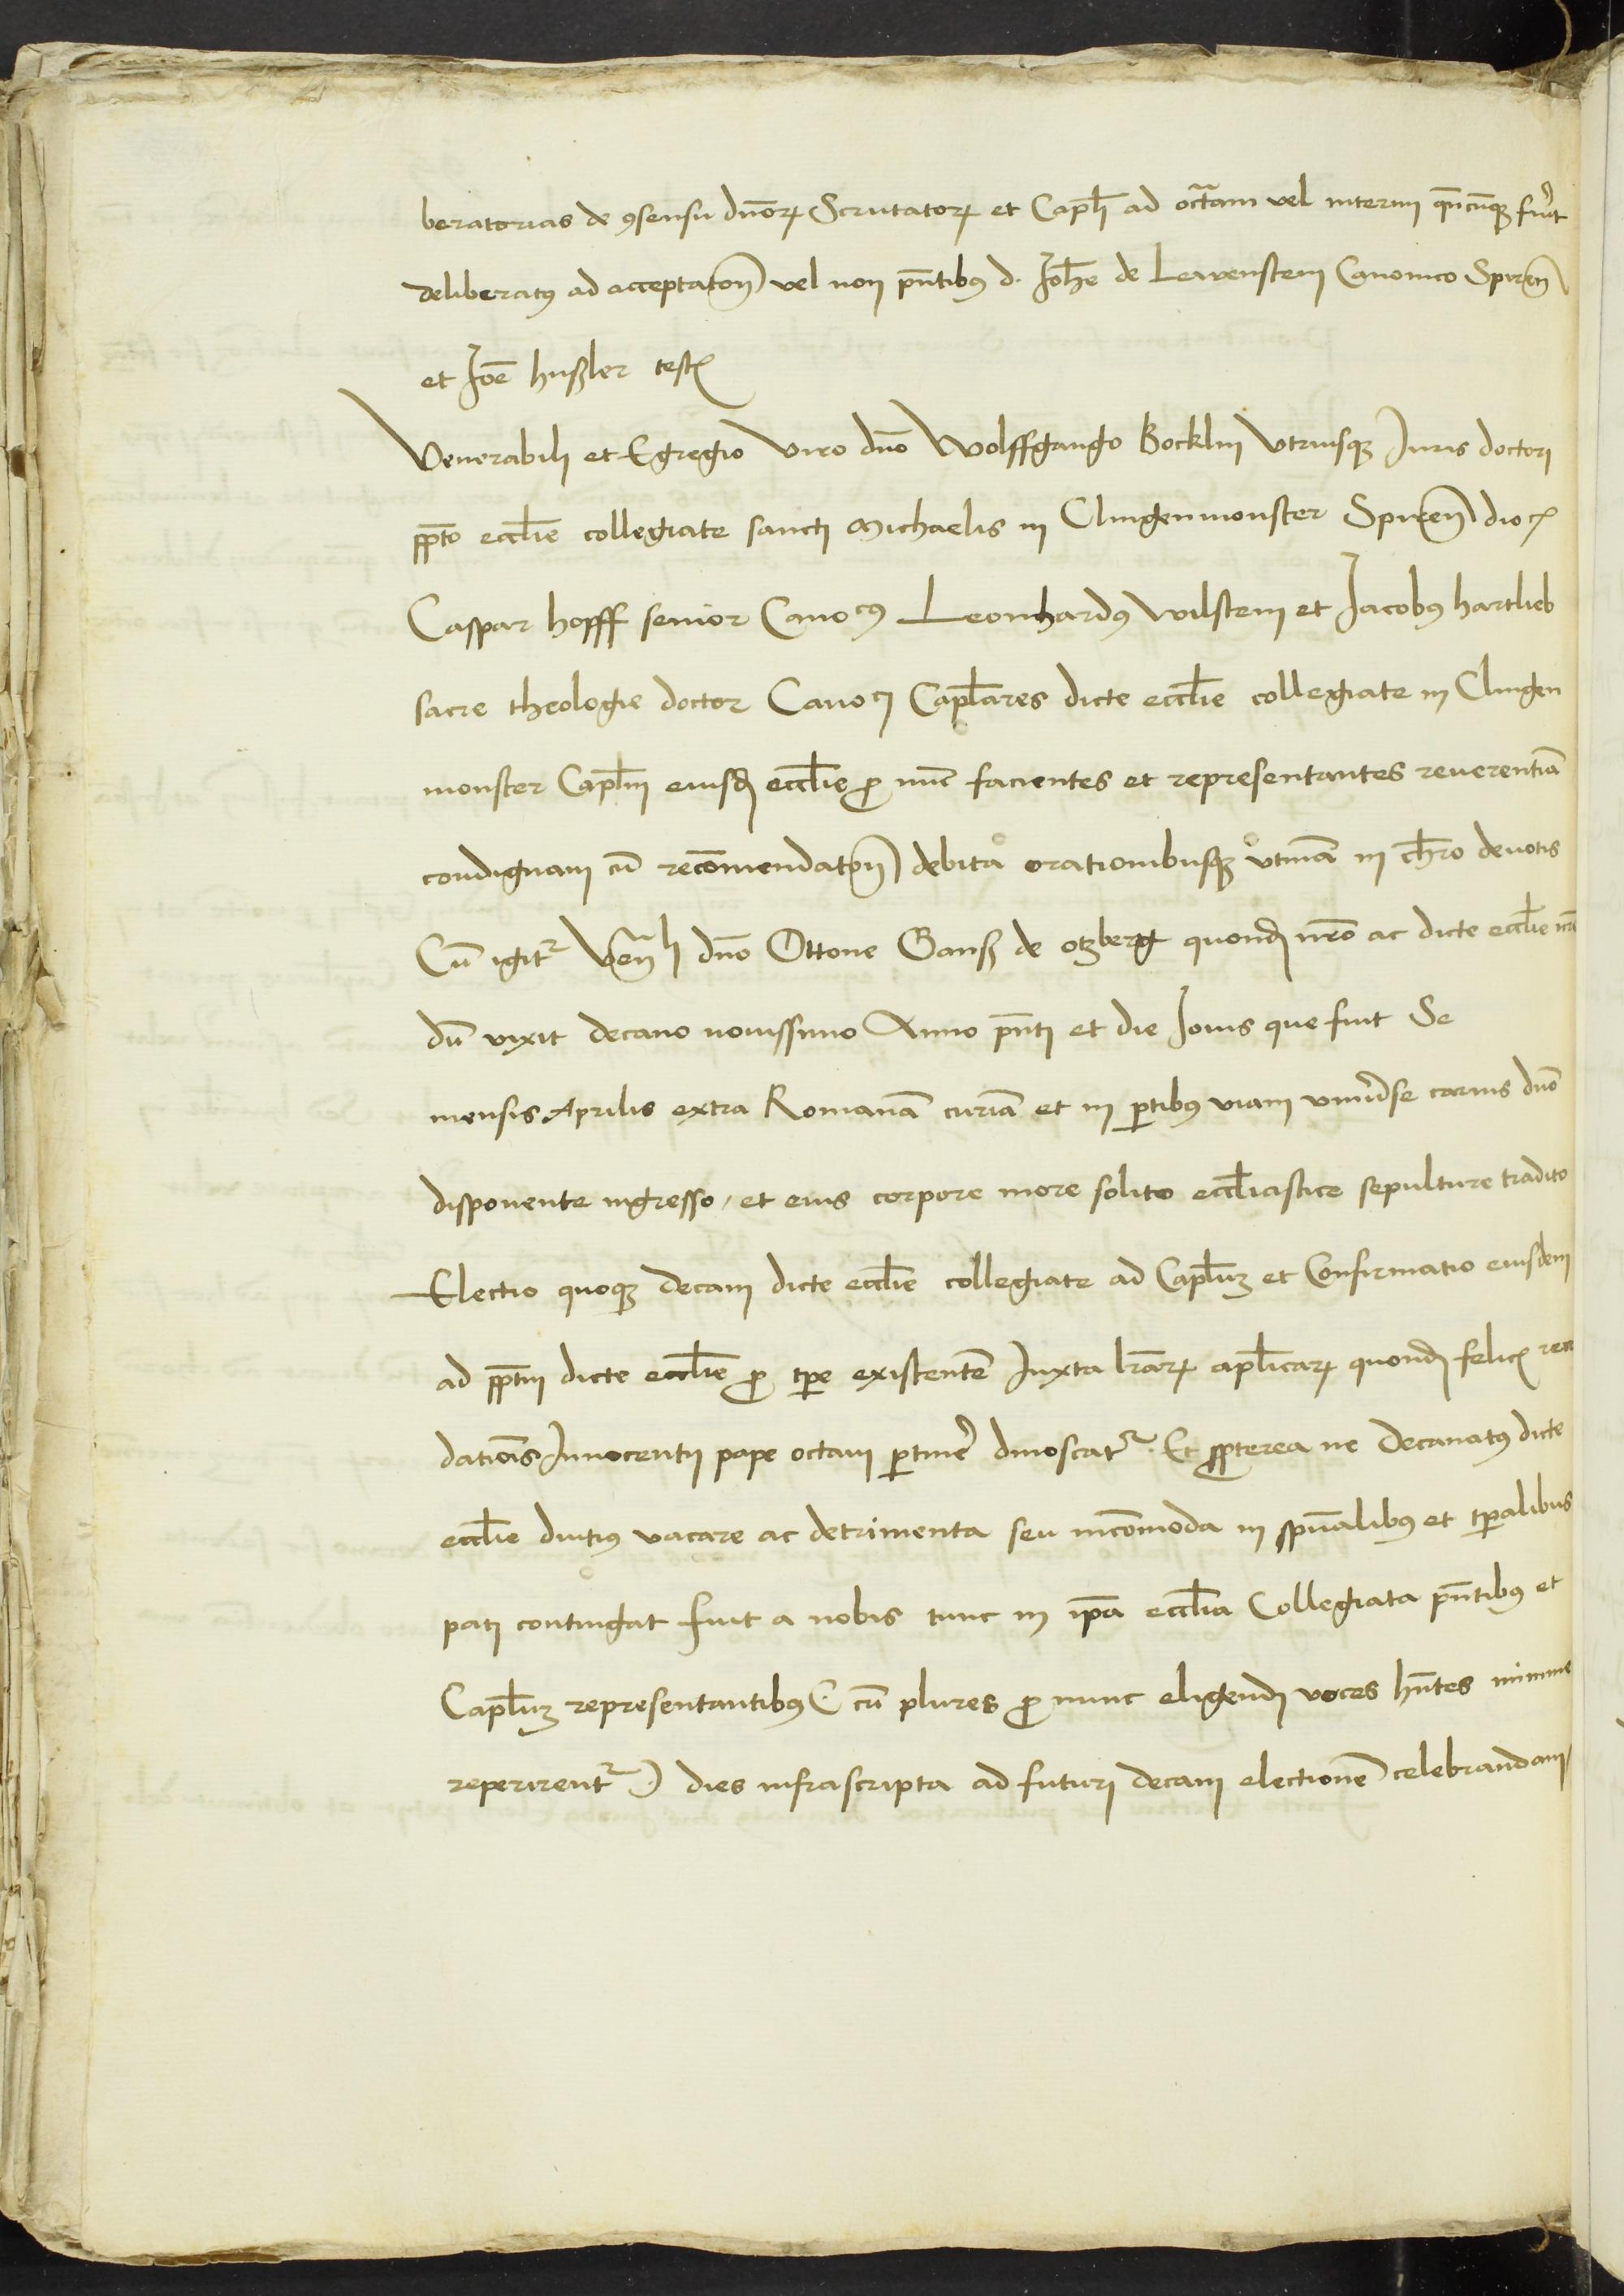 beratorias de ꝯsensu dn̄oꝝ Scrutatoꝝ et Capl̄i ad octauam vel interim qn̄cūqꝫ fuerit
deliberatꝰ ad acceptaton̄ vel non pn̄tibꝰ d. Joh̄e de Lewenstein Canonico Spiren̄
et Joē hußler testꝭ
Venerabili et Egregio viro dn̄o Wolffgango Bocklin Vtriusqꝫ Juris doctori
ppto eccl̄ie collegiate sancti Michaelis in Clingenmonster Spiren̄ diocꝭ
Caspar hopff senior Canocꝰ Leonhardꝰ wilstein et Jacobꝰ hartlieb
sacre theologie doctor Canoci Capl̄ares dicte eccl̄ie collegiate in Clingen
monster Capl̄m eiusd̄ eccl̄ie ꝓ nūc facientes et representantes reuerentiā
condignam cū recōmendaton̄ debita orationibusqꝫ vtinā in chr̄o deuotis
Cū igitr Ven̄li dn̄o Ottone Ganß de otzberg quond̄ nr̄o ac dicte eccl̄ie nr̄e
dū vixit decano nouissimo Anno pn̄ti et die Jouis que fuit Se
mensis Aprilis extra Romanā curiā et in ꝑtibꝰ viam vniuerse carnis dn̄o
disponente ingresso / et eius corpore more solito eccl̄iastice sepulture tradito
Electio quoqꝫ decani dicte eccl̄ie collegiate ad Capl̄uꝫ et Confirmatio eiusdem
ad pptm dicte eccl̄ie ꝓ tꝑe existentē Juxta lr̄arꝝ apl̄icarꝝ quond̄ felicꝭ recor
dationis Innocentii pape octaui ꝑtinere dinoscatr. Et ꝓpterea ne decanatꝰ dicte
eccl̄ie diutius vacare ac detrimenta seu incōmoda in spūalibꝰ et tꝑalibus
pati contingat fuit a nobis tunc in ip̄a eccl̄ia Collegiata pn̄tibꝰ et
Capl̄uꝫ representantibꝰ (. cū plures ꝓ nunc eligendi voces hn̄tes minime
reperirentr .) dies infrascripta ad futuri decani electionē celebrandam /